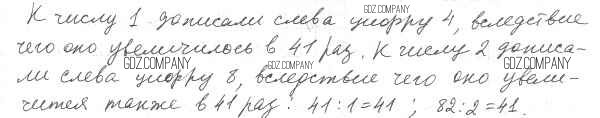 К числу 1 дописали слева цифру 4, вследствие
чего оно увеличилось в 41 раз. К числу 2 дописа-
ли слева цифру 8, вследствие чего оно увели-
чится также в 41 раз: 41:1=41 ; 82:2=41.
GDZ.COMPANY
GDZ.COMPANY
GDZ.COMPANY
GDZ.COMPANY
GDZ.COMPANY